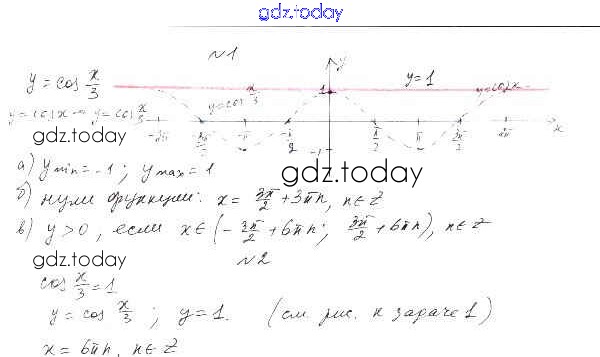 gdz.today
№1
y = cos x/3
y = cos x → y = cos x/3
y = cos x/3
y
1
y = 1
y = cos x
-2π -3π/2 -π -π/2 π/2 π 3π/2 2π x
-1
gdz.today
gdz.today
а) y min = -1; y max = 1
б) нули функции: x = 3π/2 + 3πn, n∈Z
в) y > 0, если x∈(-3π/2 + 6πn; 3π/2 + 6πn), n∈Z
gdz.today
№2
cos x/3 = 1
y = cos x/3; y = 1. (см. рис. к задаче 1)
x = 6πn, n∈Z